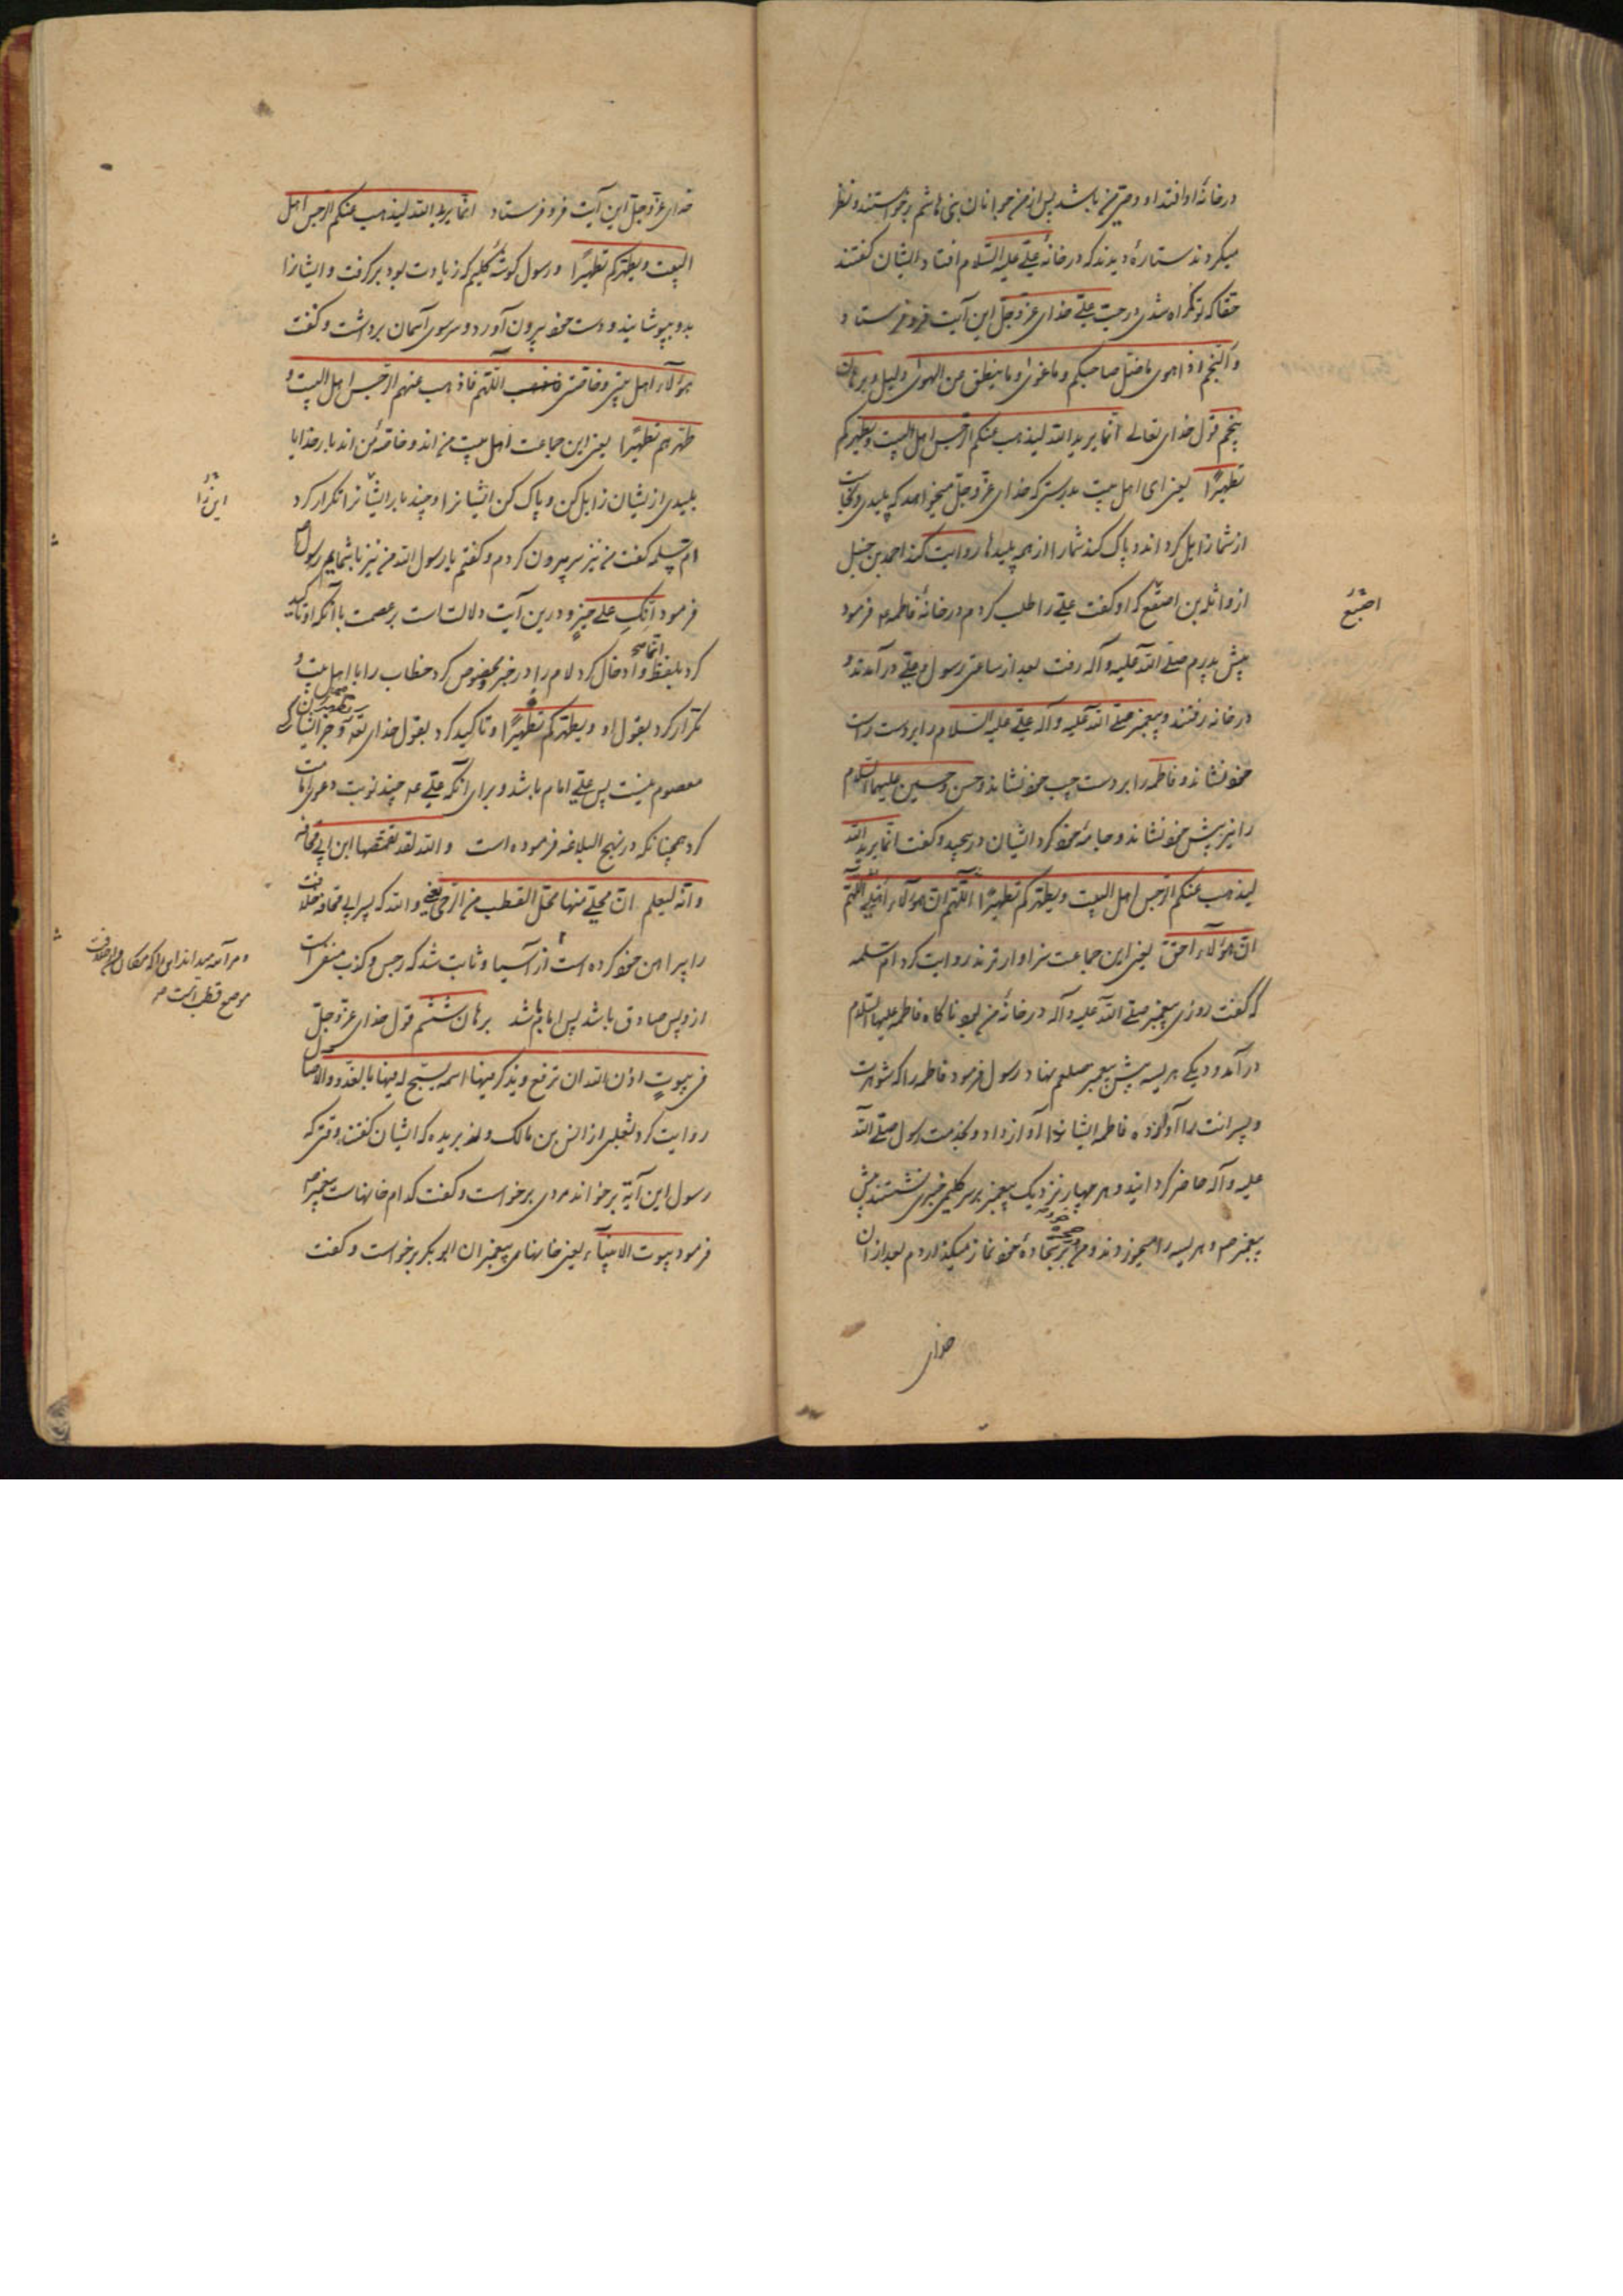 در خانهٔ او افتد او وصی من باشد پس از من جوانان بنی هاشم برخواستند و نظر
میکردند ستارهٔ دیدند که در خانهٔ علی علیه السلام افتاد ایشان گفتند
حقا که تو گمراه شدی در حب علی خدای عز و جل این آیت فرو فرستاد
والنجم اذا هوی ما ضل صاحبکم و ما غوی و ما ینطق عن الهوی دلیل و برهان
پنجم قول خدای تعالی انما یرید الله لیذهب عنکم الرجس اهل البیت و یطهرکم
تطهیرًا یعنی ای اهل بیت بدرستی که خدای عز و جل میخواهد که پلیدی و نجاست
از شما زایل کرداند و پاک کند شما را از همه پلیدها روایت کند احمد بن حنبل
از واثلة بن اصقع که او گفت علی را طلب کردم در خانهٔ فاطمه ع فرمود
اصبع
پیش پدرم صلی الله علیه و آله رفت بعد از ساعتی رسول و علی در آمدند و
در خانه رفتند و پیغمبر صلی الله علیه و آله علی علیه السلام را بر دست راست
خود نشاند و فاطمه را بر دست چپ خود نشاند و حسن و حسین علیهما السلام
را نیز پیش خود نشاند و جامهٔ خود کرد ایشان در پیچید و گفت انما یرید الله
لیذهب عنکم الرجس اهل البیت و یطهرکم تطهیرًا اللهم ان هؤلاء اهلی اللهم
ان هؤلاء احق یعنی این جماعت سزاوارترند روایت کرد ام سلمه
که گفت روزی پیغمبر صلی الله علیه و آله در خانهٔ من بود ناگاه فاطمه علیها السلام
در آمد و دیکی هریسه پیش پیغمبر صلعم نهاد رسول فرمود فاطمه را که شوهرت
و پسرانت را آواز ده فاطمه ایشانرا آواز داد و بخدمت رسول صلی الله
علیه و آله حاضر گردانید و هر چهار نزدیک پیغمبر بر سر گلیمی خیبری نشستند پیش
پیغمبر ص و هریسه را میخوردند و من در حجره بر سجادهٔ خود نماز میکذاردم بعد از آن
خدای
خدای عز و جل این آیت فرو فرستاد انما یرید الله لیذهب عنکم الرجس اهل
البیت و یطهرکم تطهیرًا و رسول گوشهٔ گلیم که زیادت بود برگرفت و ایشانرا
بدو بپوشانید و دست خود بیرون آورد و سر سوی آسمان برداشت و گفت
هؤلاء اهل بیتی و خاصتی اللهم فاذهب عنهم الرجس اهل البیت و
طهرهم تطهیرًا یعنی این جماعت اهل بیت من اند و خاصهٔ من اند بار خدایا
پلیدی از یشان زایل کن و پاک کن ایشانرا و چند بار ایشانرا تکرار کرد
این را
ام سلمه گفت من نیز سر بیرون کردم و گفتم یا رسول الله من نیز با شمایم رسول
فرمود انک علی خیر و درین آیت دلالت است بر عصمت با آنکه او تاکید
کرد بلفظ انما و ادخال کرد لام را در خبر و مخصوص کرد خطاب را با اهل بیت و
تکرار کرد بقول او و یطهرکم تطهیرًا و تاکید کرد بقول خدای
معصوم نیست پس علی امام باشد و برای آنکه علی ع چند نوبت دعوی امامت
کرد همچنانکه در نهج البلاغه فرموده است و الله لقد تقمصها ابن ابی قحافه
و انه لیعلم ان محلی منها محل القطب من الرحی یعنی والله که پسر ابی قحافه خلافت
را پیراهن خود کرده است از آسیا و ثابت شد که رجس و کذب منفی است
و هر آینه میداند این را که مکان من از خلافت
موضع قطب است
از و پس صادق باشد پس امام باشد برهان ششم قول خدای عز و جل
فی بیوت اذن الله ان ترفع و یذکر فیها اسمه یسبح له فیها بالغدو والآصال
روایت کرد ثعلبی از انس بن مالک و بریده که ایشان گفتند وقتی که
رسول این آیة برخواند مردی برخواست و گفت کدام خانهاست پیغمبر ص
فرمود بیوت الانبیاء یعنی خانهای پیغمبران ابو بکر برخواست و گفت